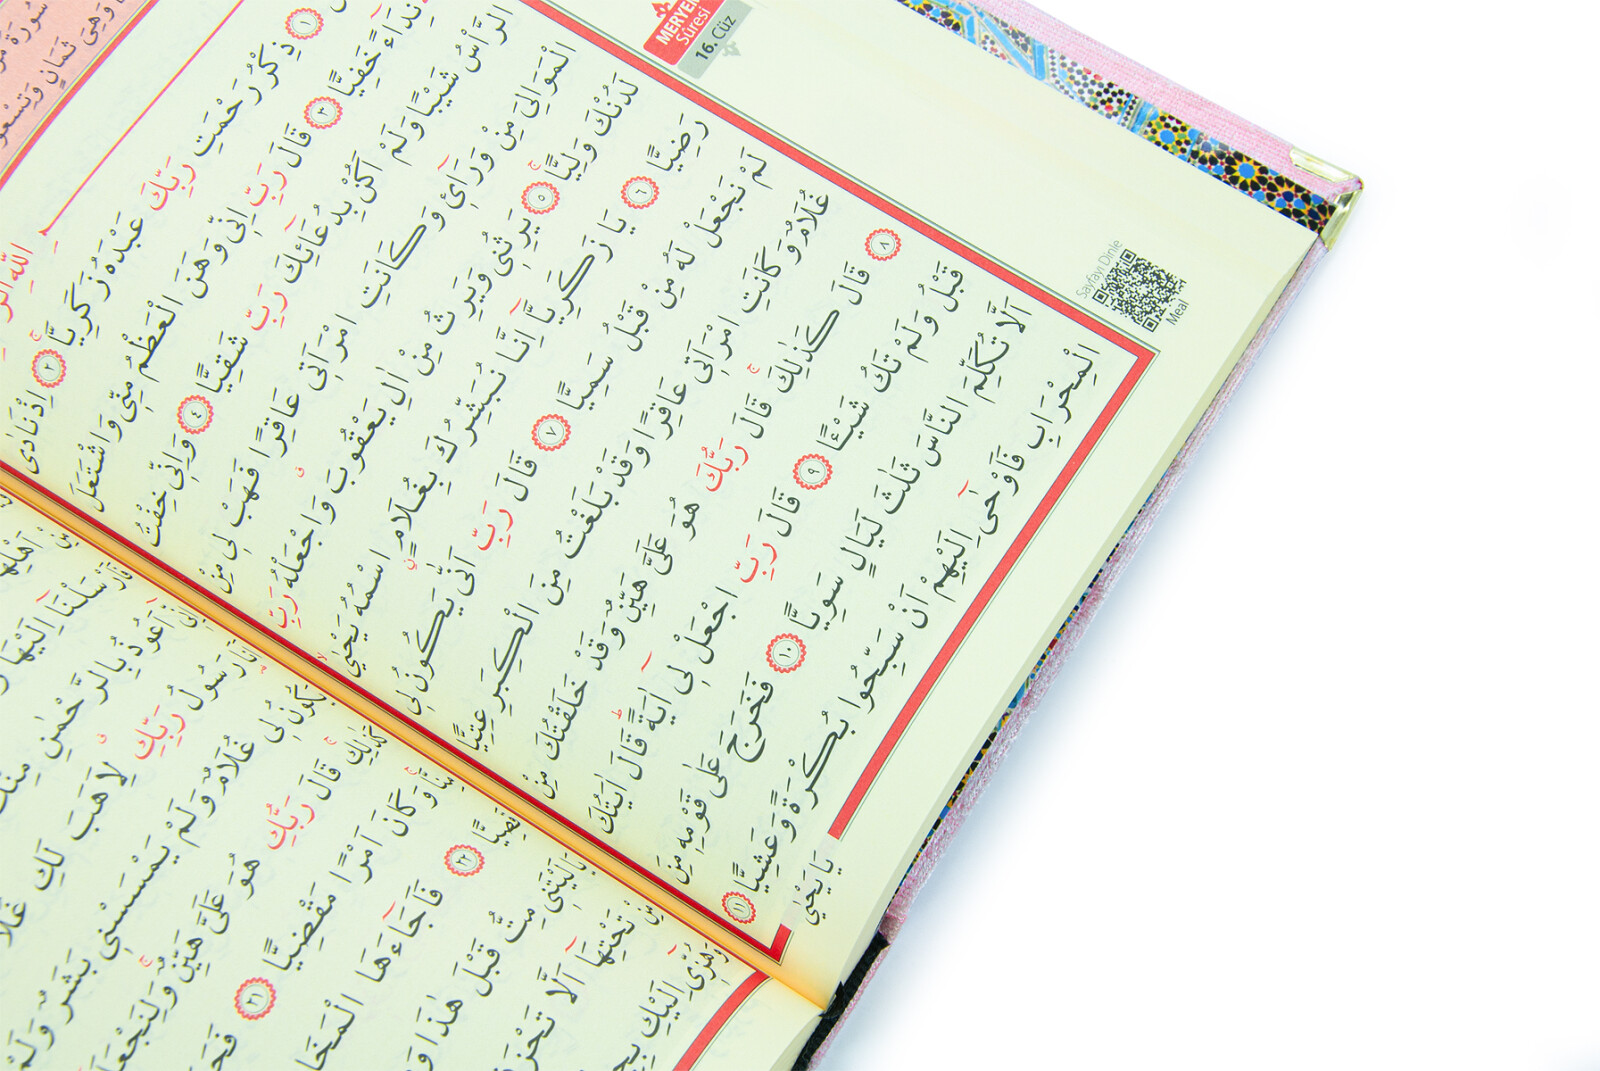 MERYEM
Sûresi
16. Cüz
سُورَةُ
وَهِيَ ثَمَانٍ وَتِسْعُونَ
﴿١﴾ ذِكْرُ رَحْمَتِ رَبِّكَ عَبْدَهُ زَكَرِيَّا ﴿٢﴾ اِذْ نَادٰى
نِدَاءً خَفِيًّا ﴿٣﴾ قَالَ رَبِّ اِنِّى وَهَنَ الْعَظْمُ مِنِّى وَاشْتَعَلَ
الرَّأْسُ شَيْبًا وَلَمْ اَكُنْ بِدُعَائِكَ رَبِّ شَقِيًّا ﴿٤﴾ وَاِنِّى خِفْتُ
الْمَوَالِىَ مِنْ وَرَائِ وَكَانَتِ امْرَاَتِى عَاقِرًا فَهَبْ لِى مِنْ
لَدُنْكَ وَلِيًّا ﴿٥﴾ يَرِثُنِى وَيَرِثُ مِنْ اٰلِ يَعْقُوبَ وَاجْعَلْهُ رَبِّ
رَضِيًّا ﴿٦﴾ يَا زَكَرِيَّا اِنَّا نُبَشِّرُكَ بِغُلَامٍ اسْمُهُ يَحْيٰى
لَمْ نَجْعَلْ لَهُ مِنْ قَبْلُ سَمِيًّا ﴿٧﴾ قَالَ رَبِّ اَنّٰى يَكُونُ لِى
غُلَامٌ وَكَانَتِ امْرَاَتِى عَاقِرًا وَقَدْ بَلَغْتُ مِنَ الْكِبَرِ عِتِيًّا
﴿٨﴾ قَالَ كَذٰلِكَ قَالَ رَبُّكَ هُوَ عَلَىَّ هَيِّنٌ وَقَدْ خَلَقْتُكَ مِنْ
قَبْلُ وَلَمْ تَكُ شَيْئًا ﴿٩﴾ قَالَ رَبِّ اجْعَلْ لِى اٰيَةً قَالَ اٰيَتُكَ
اَلَّا تُكَلِّمَ النَّاسَ ثَلٰثَ لَيَالٍ سَوِيًّا ﴿١٠﴾ فَخَرَجَ عَلٰى قَوْمِهِ مِنَ
الْمِحْرَابِ فَاَوْحٰى اِلَيْهِمْ اَنْ سَبِّحُوا بُكْرَةً وَعَشِيًّا ﴿١١﴾
يَا يَحْيٰى
Sayfayı Dinle
Meal
مِنْ اَهْلِهَا
فَاَرْسَلْنَا اِلَيْهَا
اِنِّى اَعُوذُ بِالرَّحْمٰنِ مِنْكَ
اَنَا رَسُولُ رَبِّكِ لِاَهَبَ لَكِ غُلَامًا
يَكُونُ لِى غُلَامٌ وَلَمْ يَمْسَسْنِى بَشَرٌ وَلَمْ
كَذٰلِكِ قَالَ رَبُّكِ هُوَ عَلَىَّ هَيِّنٌ وَلِنَجْعَلَهُ
مِنَّا وَكَانَ اَمْرًا مَقْضِيًّا ﴿٢١﴾
قَصِيًّا ﴿٢٢﴾ فَاَجَاءَهَا الْمَخَاضُ
يَا لَيْتَنِى مِتُّ قَبْلَ هٰذَا
مِنْ تَحْتِهَا اَلَّا تَحْزَنِى
وَهُزِّى اِلَيْكِ